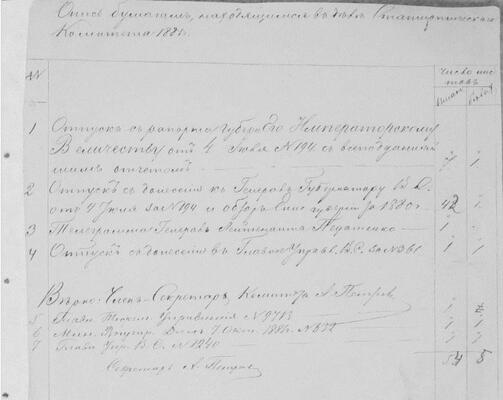 Опись бумагам, находящимся въ дѣлѣ Статистическаго
Комитета 1881 г.
№№
Число лис
товъ
1 Отпускъ съ рапорта Губер Его Императорскому
Величеству отъ 4 Июля N 194 съ всеподданнѣ
шимъ отчетомъ 1
2 Отпускъ съ донесенія къ Генералъ Губернатору В. С.
отъ 4 Июля за N 194 и обзоръ Енис губерніи за 1880 г. 42 1
3 Телеграмма Генералъ Лейтенанта 1 1
4 Отпускъ съ донесенія въ Главное Управл. В. С. за N 361 1 1
Вѣрно: Членъ-Секретарь Комитета А. Петровъ
5 Управленія N 9713 1
6 Мин. Внутр. Дѣлъ 7 Окт. 1881 г. N 572 1 1
7 Главн Упр. В. С. N 1240 1 1
54 5
Секретарь А. Петровъ